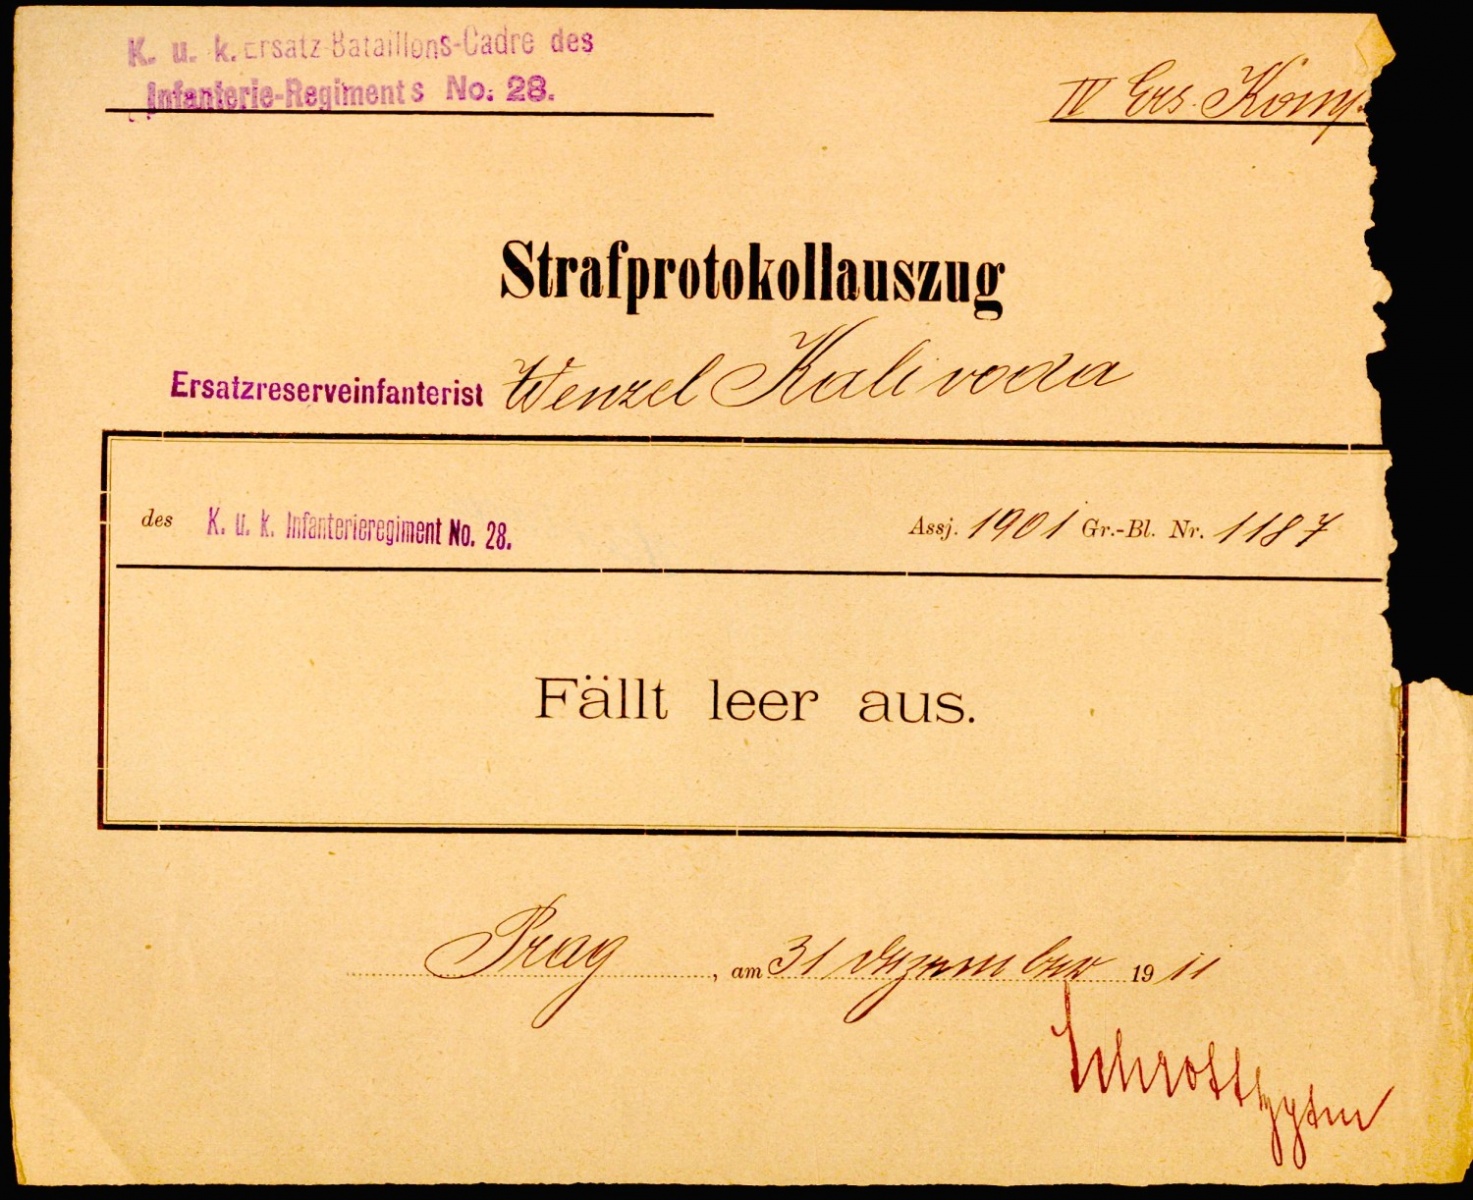 K. u. k. Ersatz-Bataillons-Cadre des
Infanterie-Regiments No. 28.
IV Ers. Komp.
Strafprotokollauszug
Ersatzreserveinfanterist Wenzel Kalivoda
des K. u. k. Infanterieregiment No. 28. Assj. 1901 Gr.-Bl. Nr. 1187
Fällt leer aus.
Prag, am 31 Dezember 1911